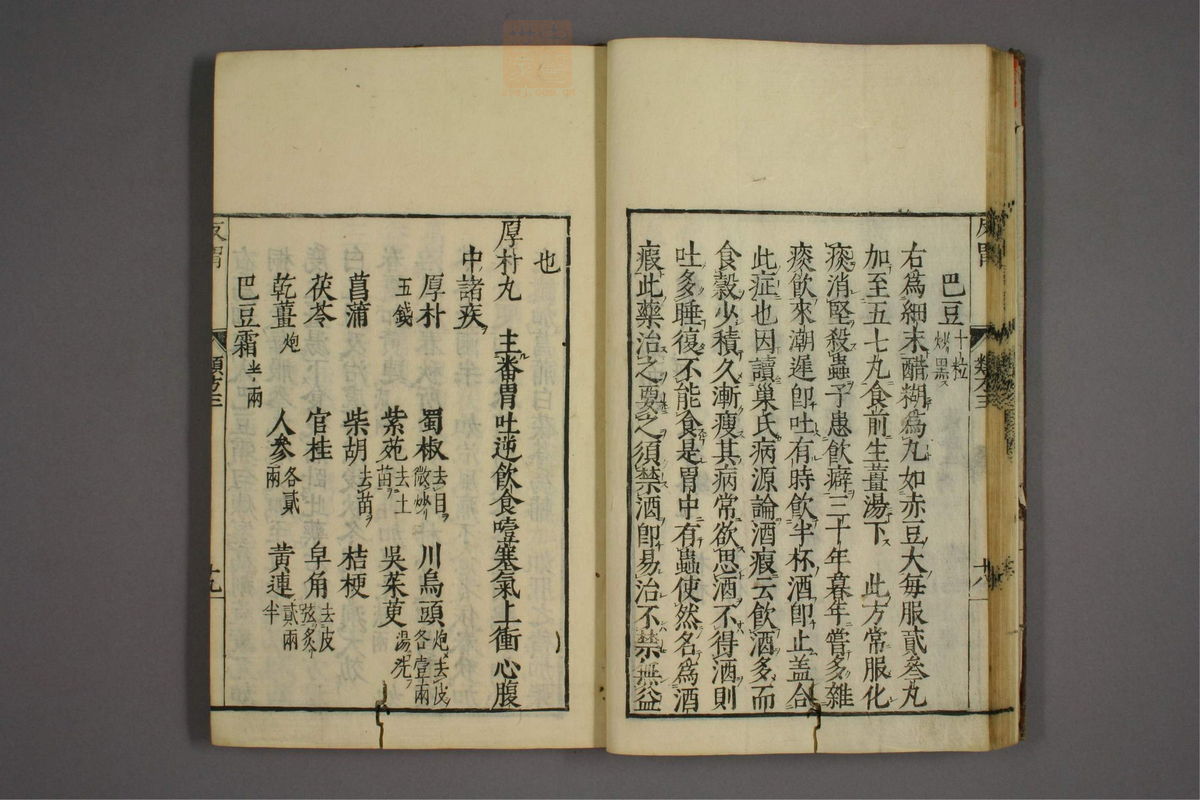 巴豆十粒炒黒ス
右爲細末醋糊爲丸如赤豆大毎服貳叄丸
加至五七丸食前生薑湯下 此方常服化
痰消堅殺蟲予患飲癖三十年暮年嘗多雜
痰飲來潮遲卽吐有時飲半杯酒卽止盖合
此症也因讀巢氏病源論酒瘕云飲酒多而
食穀少積久漸瘦其病常欲思酒不得酒則
吐多睡復不能食是胃中有蟲使然名爲酒
瘕此藥治之要之須禁酒卽易治不禁無益
也
厚朴丸 主番胃吐逆飲食噎塞氣上衝心腹
中諸疾
厚朴五錢 蜀椒去目微炒 川烏頭炮去皮各壹兩
紫苑去土苗 吳茱萸湯洗
菖蒲 柴胡去苗 桔梗
茯苓 官桂 皁角去皮弦炙
乾薑炮 人參各貳兩 黄連貳兩半
巴豆霜半兩
反胃
十九
十八